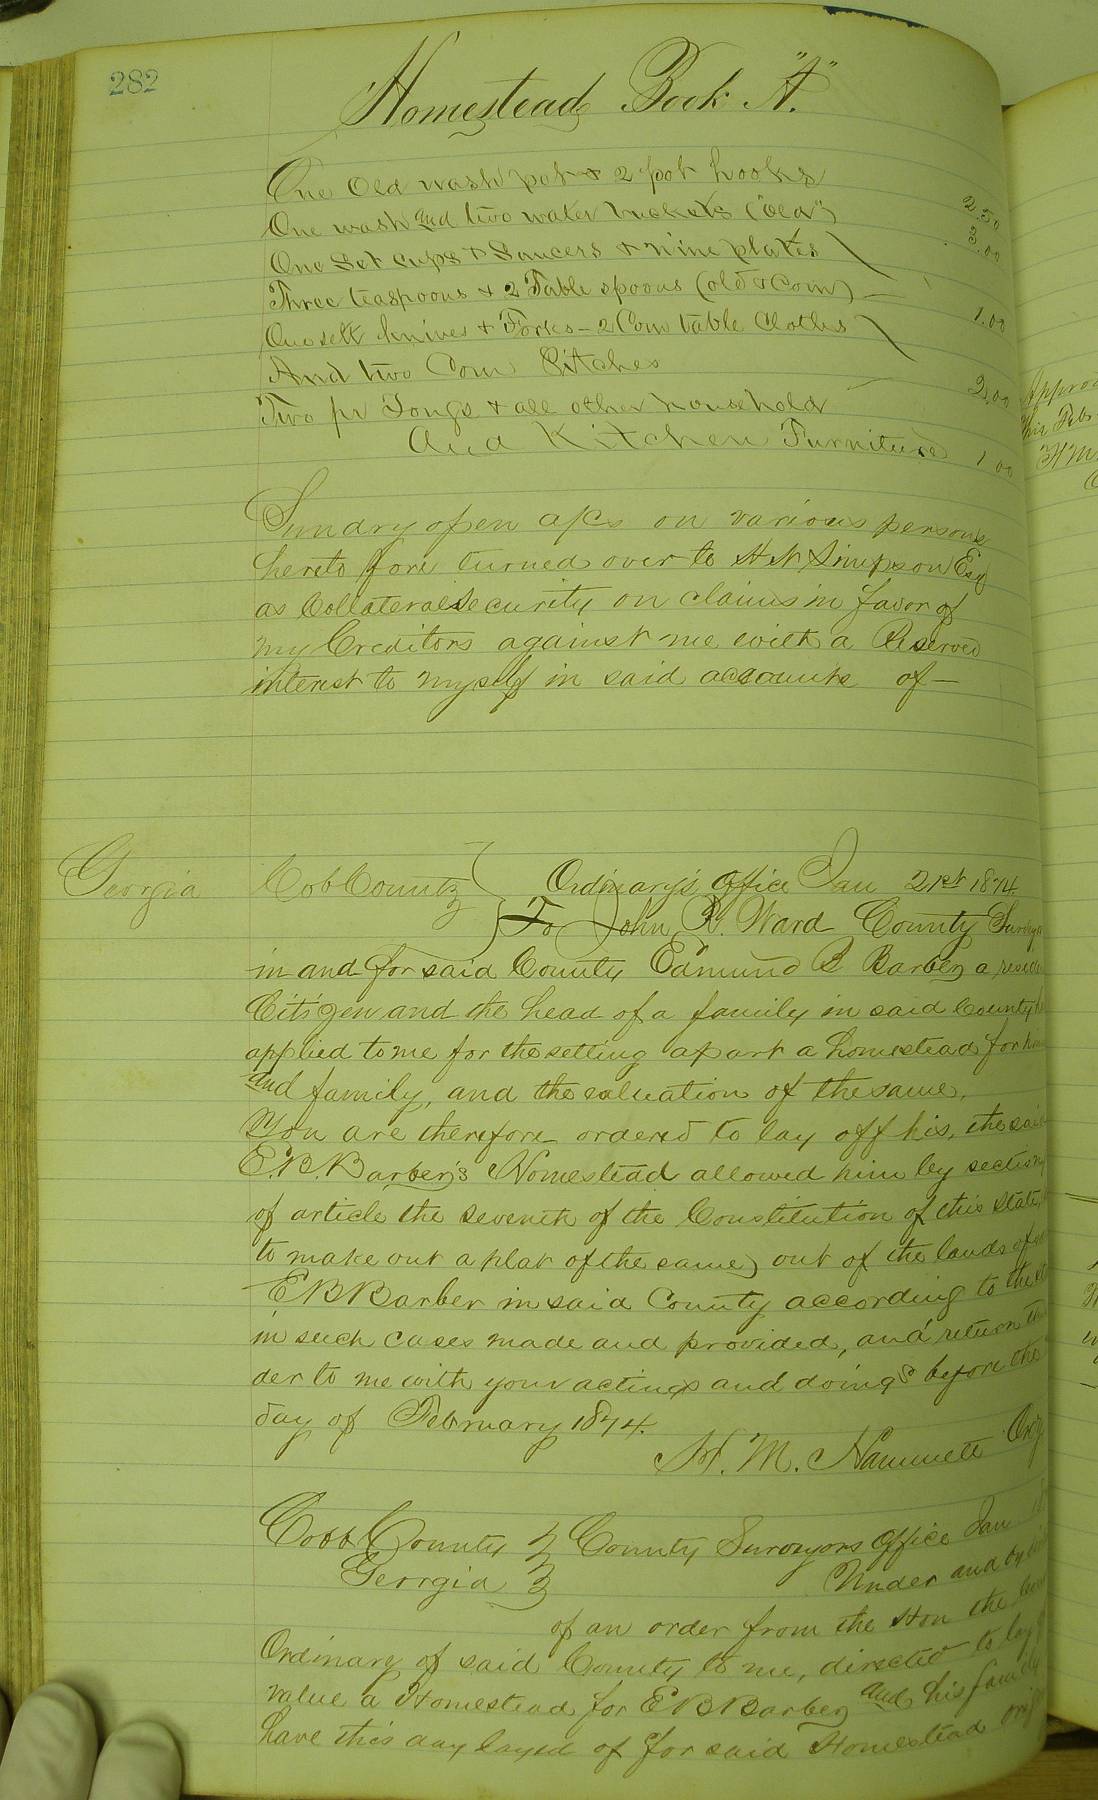 282
Homestead Book "A".
One Old wash pot & 2 pot hooks
One wash and two water buckets ("old") 2.50
One Set cups & Saucers & nine plates 3.00
Three teaspoons & 2 Table spoons (old & Com)
One sett knives & Forks - 2 Com table Cloths 1.00
And two Com Pitches
Two pr Tongs & all other household 2.00
And Kitchen Furniture 1 00
Sundry open a/cs on various persons
hereto fore turned over to Simpson Esq
as Collateral Security on claims in favor of
my Creditors against me with a Reserved
interest to myself in said accounts of —
Georgia Cob County Ordinary's Office Jan 21st 1874
To John R. Ward County
in and for said County Edmund B Barber a
Citizen and the head of a family in said County
applied to me for the setting apart a homestead for
and family, and the valuation of the same.
You are therefore ordered to lay off his, the said
E. B. Barber's Homestead allowed him by section
of article the seventh of the Constitution of this State,
to make out a plat of the same, out of the lands of
E B Barber in said County according to the
in such cases made and provided, and return
der to me with your actings and doings before the
day of February 1874.
H. M. Hammett Ord
Cobb County County Surveyors Office Jan
Georgia Under and by
of an order from the Hon the
Ordinary of said County to me, directed to lay
value a Homestead for E B Barber and his family
have this day layed of for said Homestead
Approv
this Feb
H M